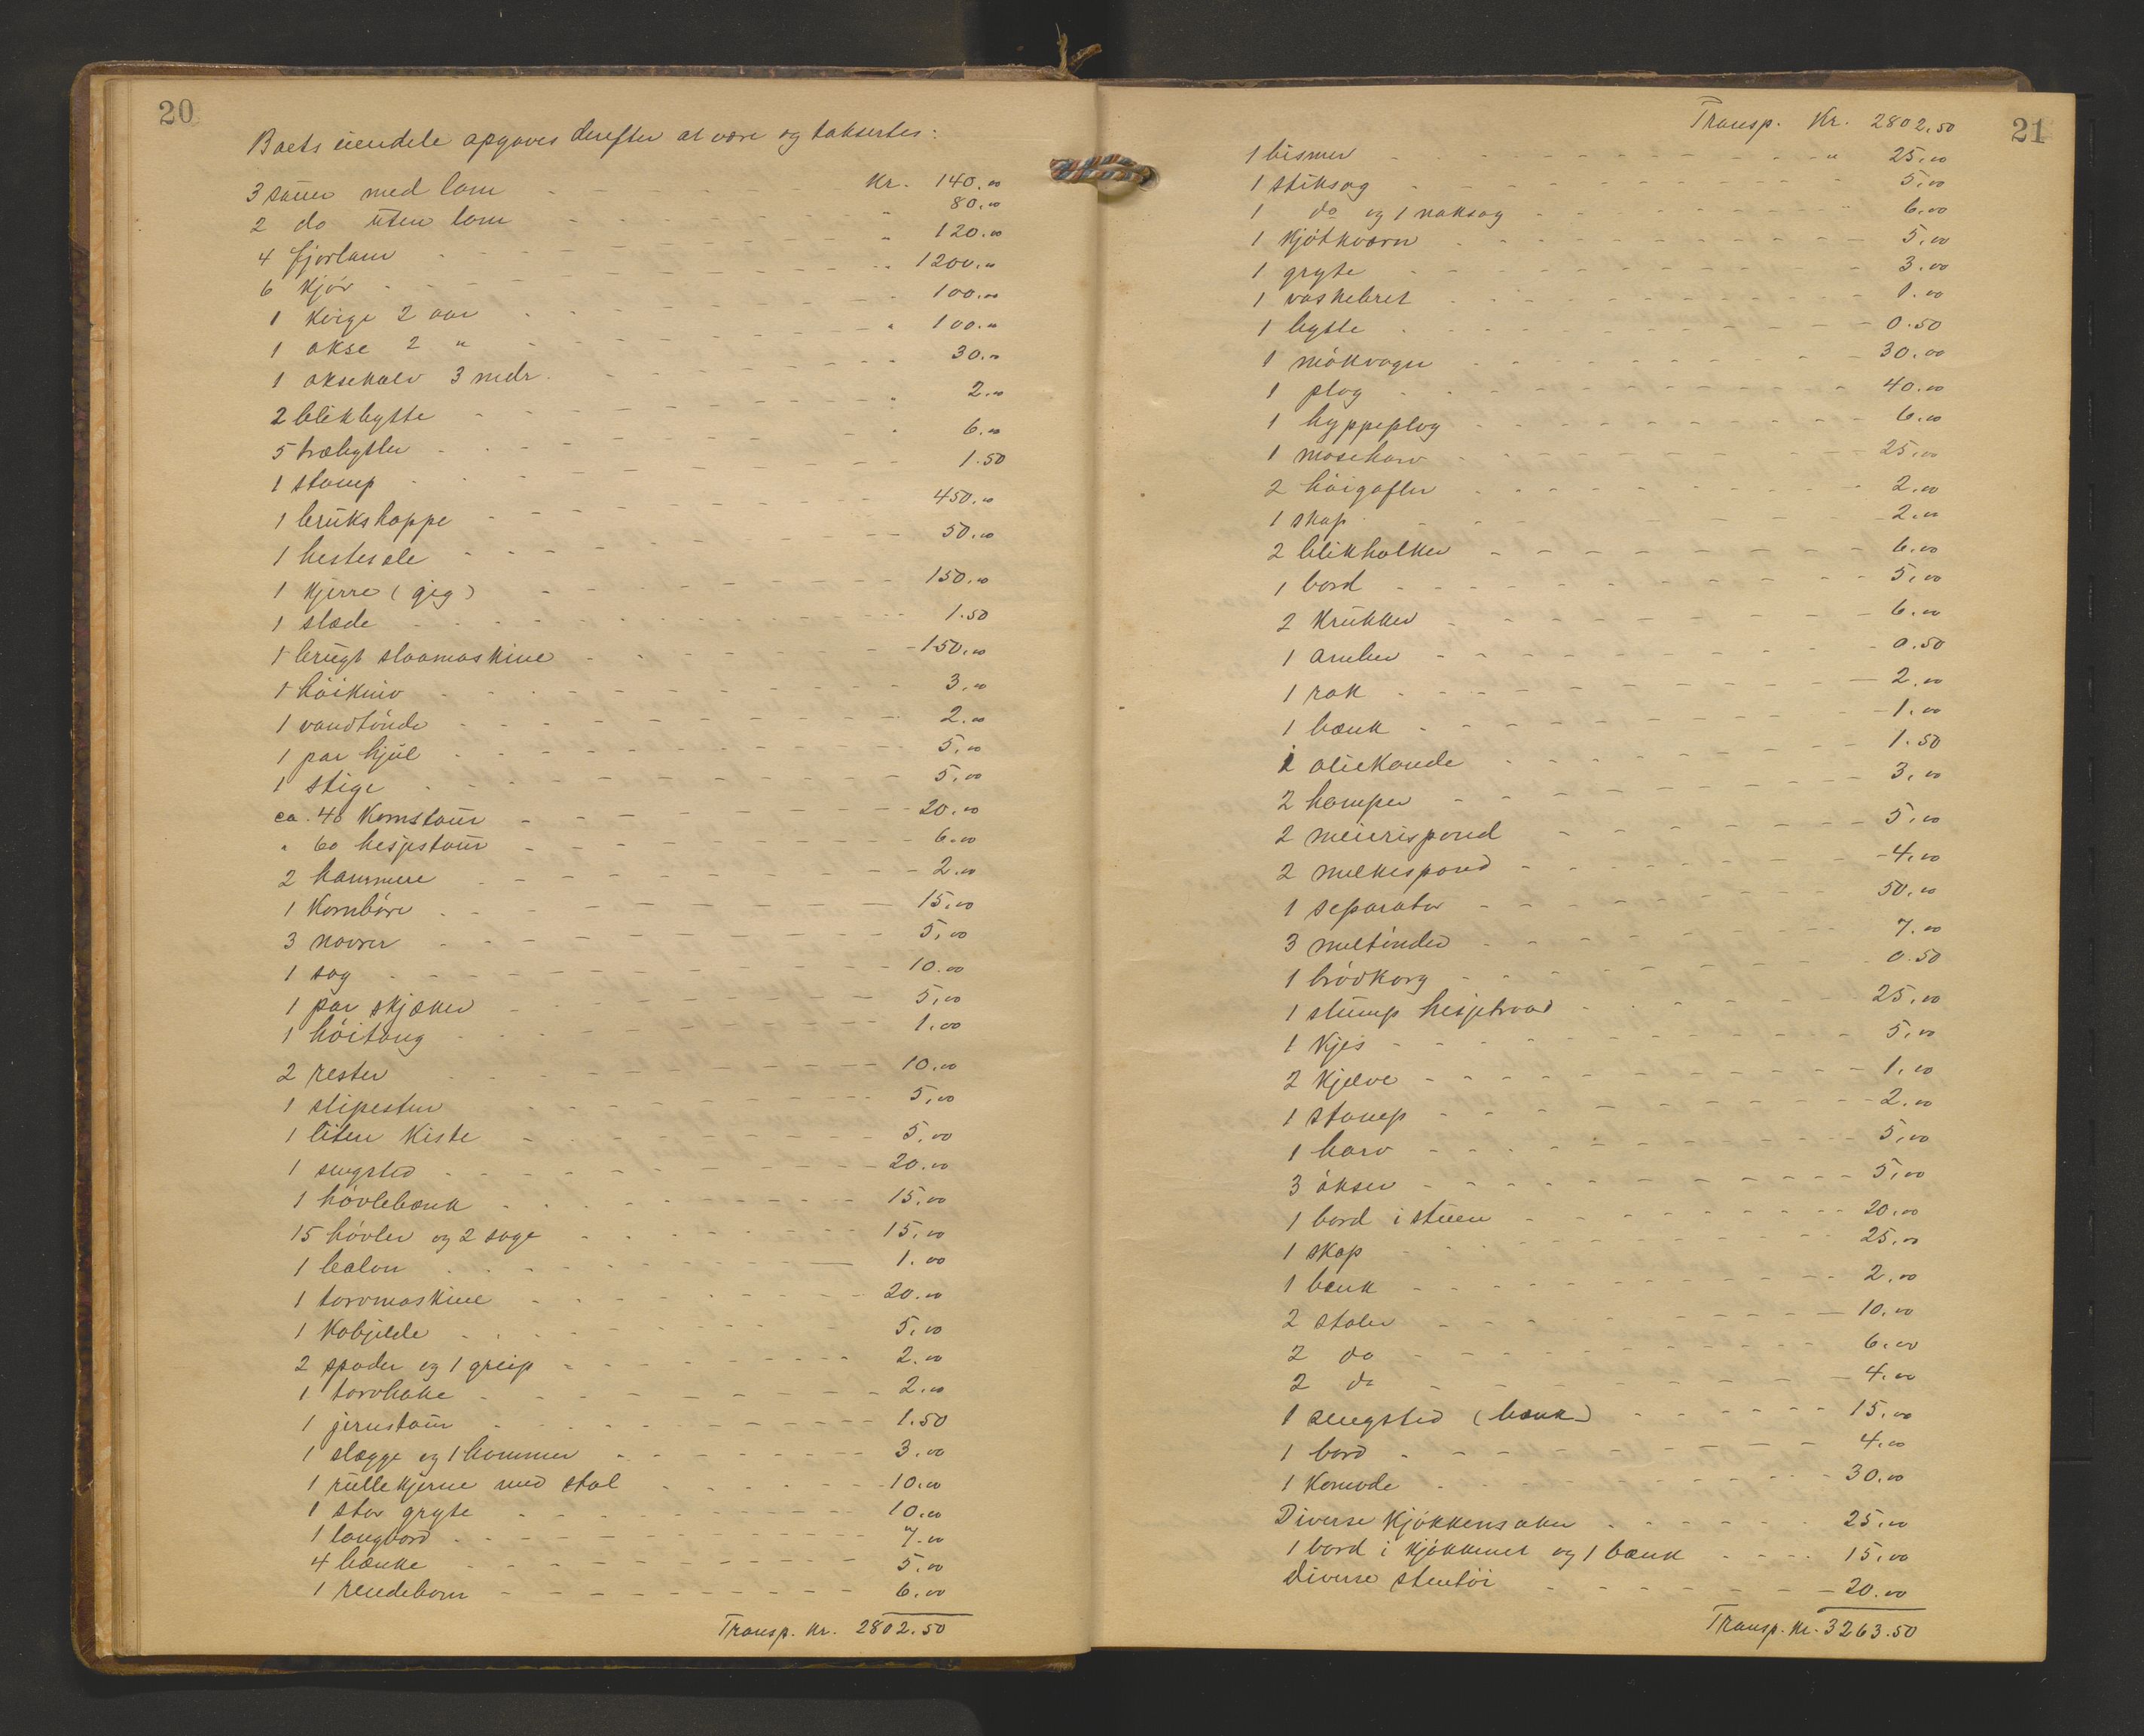 20
Boets eiendele opgaves derefter at være og taksertes:
3 sauer med lam Kr. 140.00
2 do uten lam " 80.00
4 fjorlam " 120.00
6 kjør " 1200.00
1 kvige 2 aar " 100.00
1 okse 2 " " 100.00
1 oksekalv 3 mdr. 30.00
2 blikbytte " 2.00
5 træbytter " 6.00
1 stamp 1.50
1 brukshoppe 450.00
1 hestesele 50.00
1 kjerre (gig) 150.00
1 slæde 1.50
1 brugt slaamaskine 150.00
1 høikniv 3.00
1 vandtønde 2.00
1 par hjul 5.00
1 stige 5.00
ca. 40 kornstaur 20.00
" 60 hesjestaur 6.00
2 hammere 2.00
1 kornbøre 15.00
3 navrer 5.00
1 sag 10.00
1 par skjæker 5.00
1 høitang 1.00
2 rester 10.00
1 slipesten 5.00
1 liten kiste 5.00
1 sengsted 20.00
1 høvlebænk 15.00
15 høvler og 2 sage 15.00
1 balon 1.00
1 torvmaskine 20.00
1 kobjelde 5.00
2 spader og 1 greip 2.00
1 torvhake 2.00
1 jernstaur 1.50
1 slægge og 1 hammer 3.00
1 rullekjerne med stol 10.00
1 stor gryte 10.00
1 langbord 7.00
4 bænke 5.00
1 rendebom 6.00
Transp. kr. 2802.50
21
Transp. Kr. 2802.50
1 bismer " 25.00
1 stiksag 5.00
1 do og 1 naksag 6.00
1 kjøtkværn 5.00
1 gryte 3.00
1 vaskebret 1.00
1 bytte 0.50
1 møkvogn 30.00
1 plog 40.00
1 hyppeplog 6.00
1 moseharv 25.00
2 høigafler 2.00
1 skap 2.00
2 blikholker 6.00
1 bord 5.00
2 krukker 6.00
1 ambar 0.50
1 rok 2.00
1 bænk 1.00
1 oliekande 1.50
2 lamper 3.00
2 meierispand 5.00
2 melkespand 4.00
1 separator 50.00
3 meltønder 7.00
1 brødkorg 0.50
1 stump hesjetraad 25.00
1 kjes 5.00
2 kjelve 1.00
1 stamp 2.00
1 harv 5.00
3 økser 5.00
1 bord i stuen 20.00
1 skap 25.00
1 bænk 2.00
2 stoler 10.00
2 do 6.00
2 do 4.00
1 sengsted (bænk) 15.00
1 bord 4.00
1 komode 30.00
Diverse kjøkkensaker 25.00
1 bord i kjøkkenet og 1 bænk 15.00
Diverse stentøi 20.00
Transp. kr. 3263.50